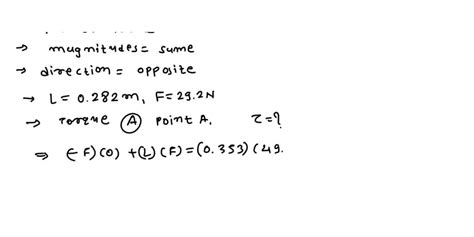 → magnitudes = sume
→ direction = opposite
→ L = 0.282m, F = 29.2N
→ Torque Ⓐ point A, τ = ?
⇒ (-F)(0) + (L)(F) = (0.353)(49.